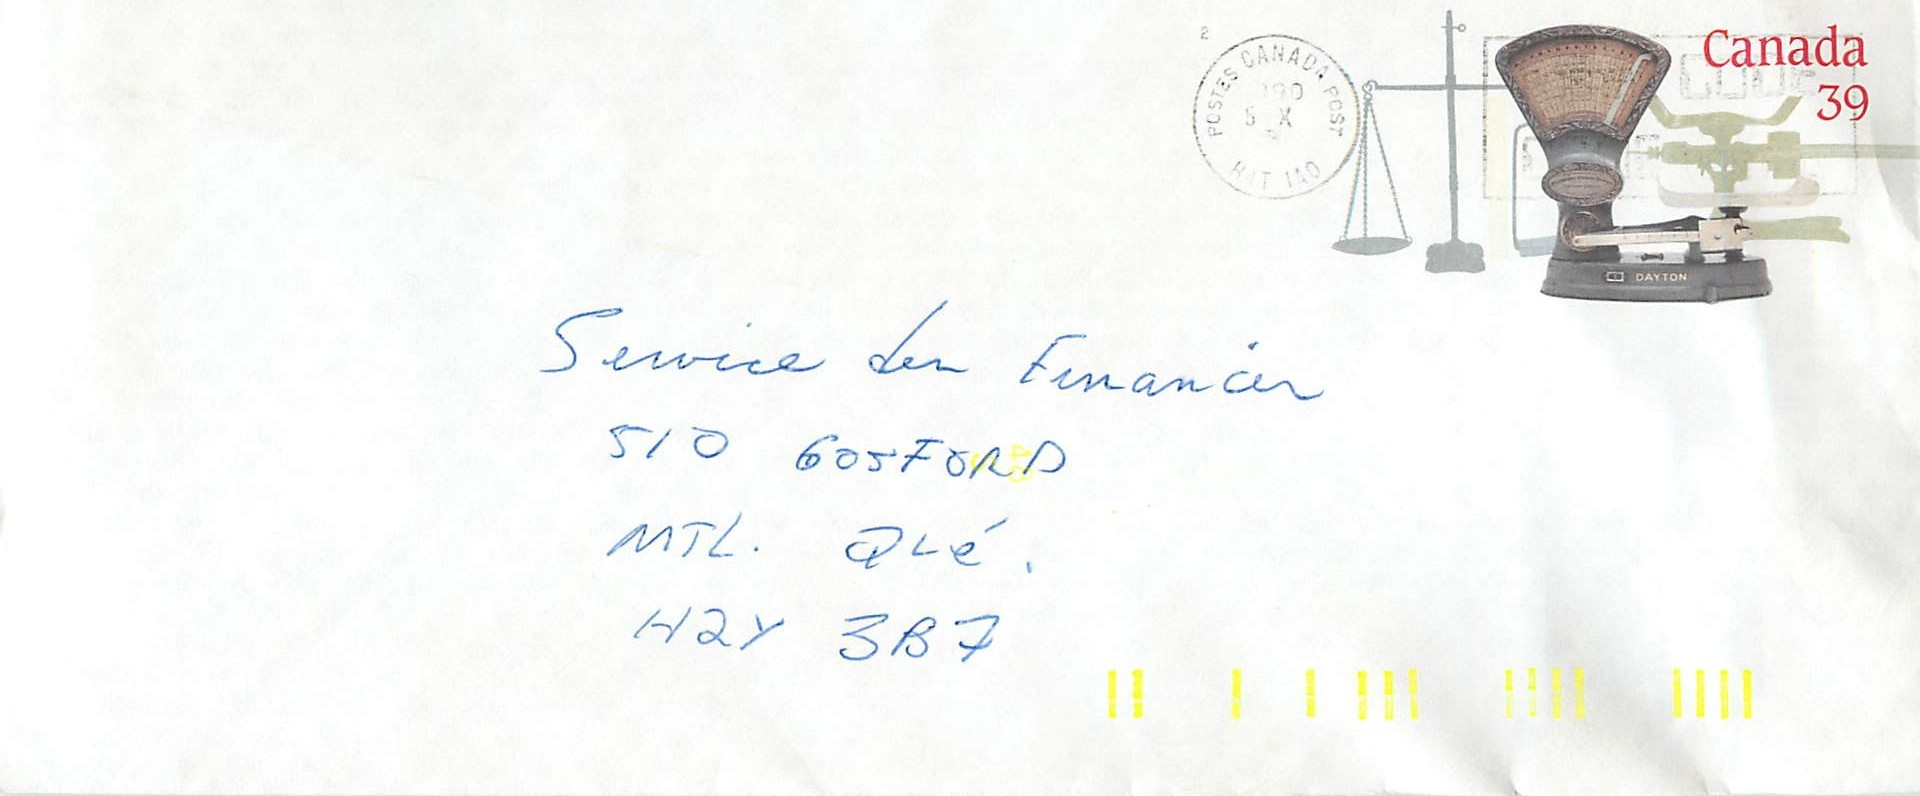 2
POSTES CANADA POST
5 X
Canada
39
DAYTON
Service des Finances
510 GOSFORD
MTL. QUÉ.
H2Y 3B7